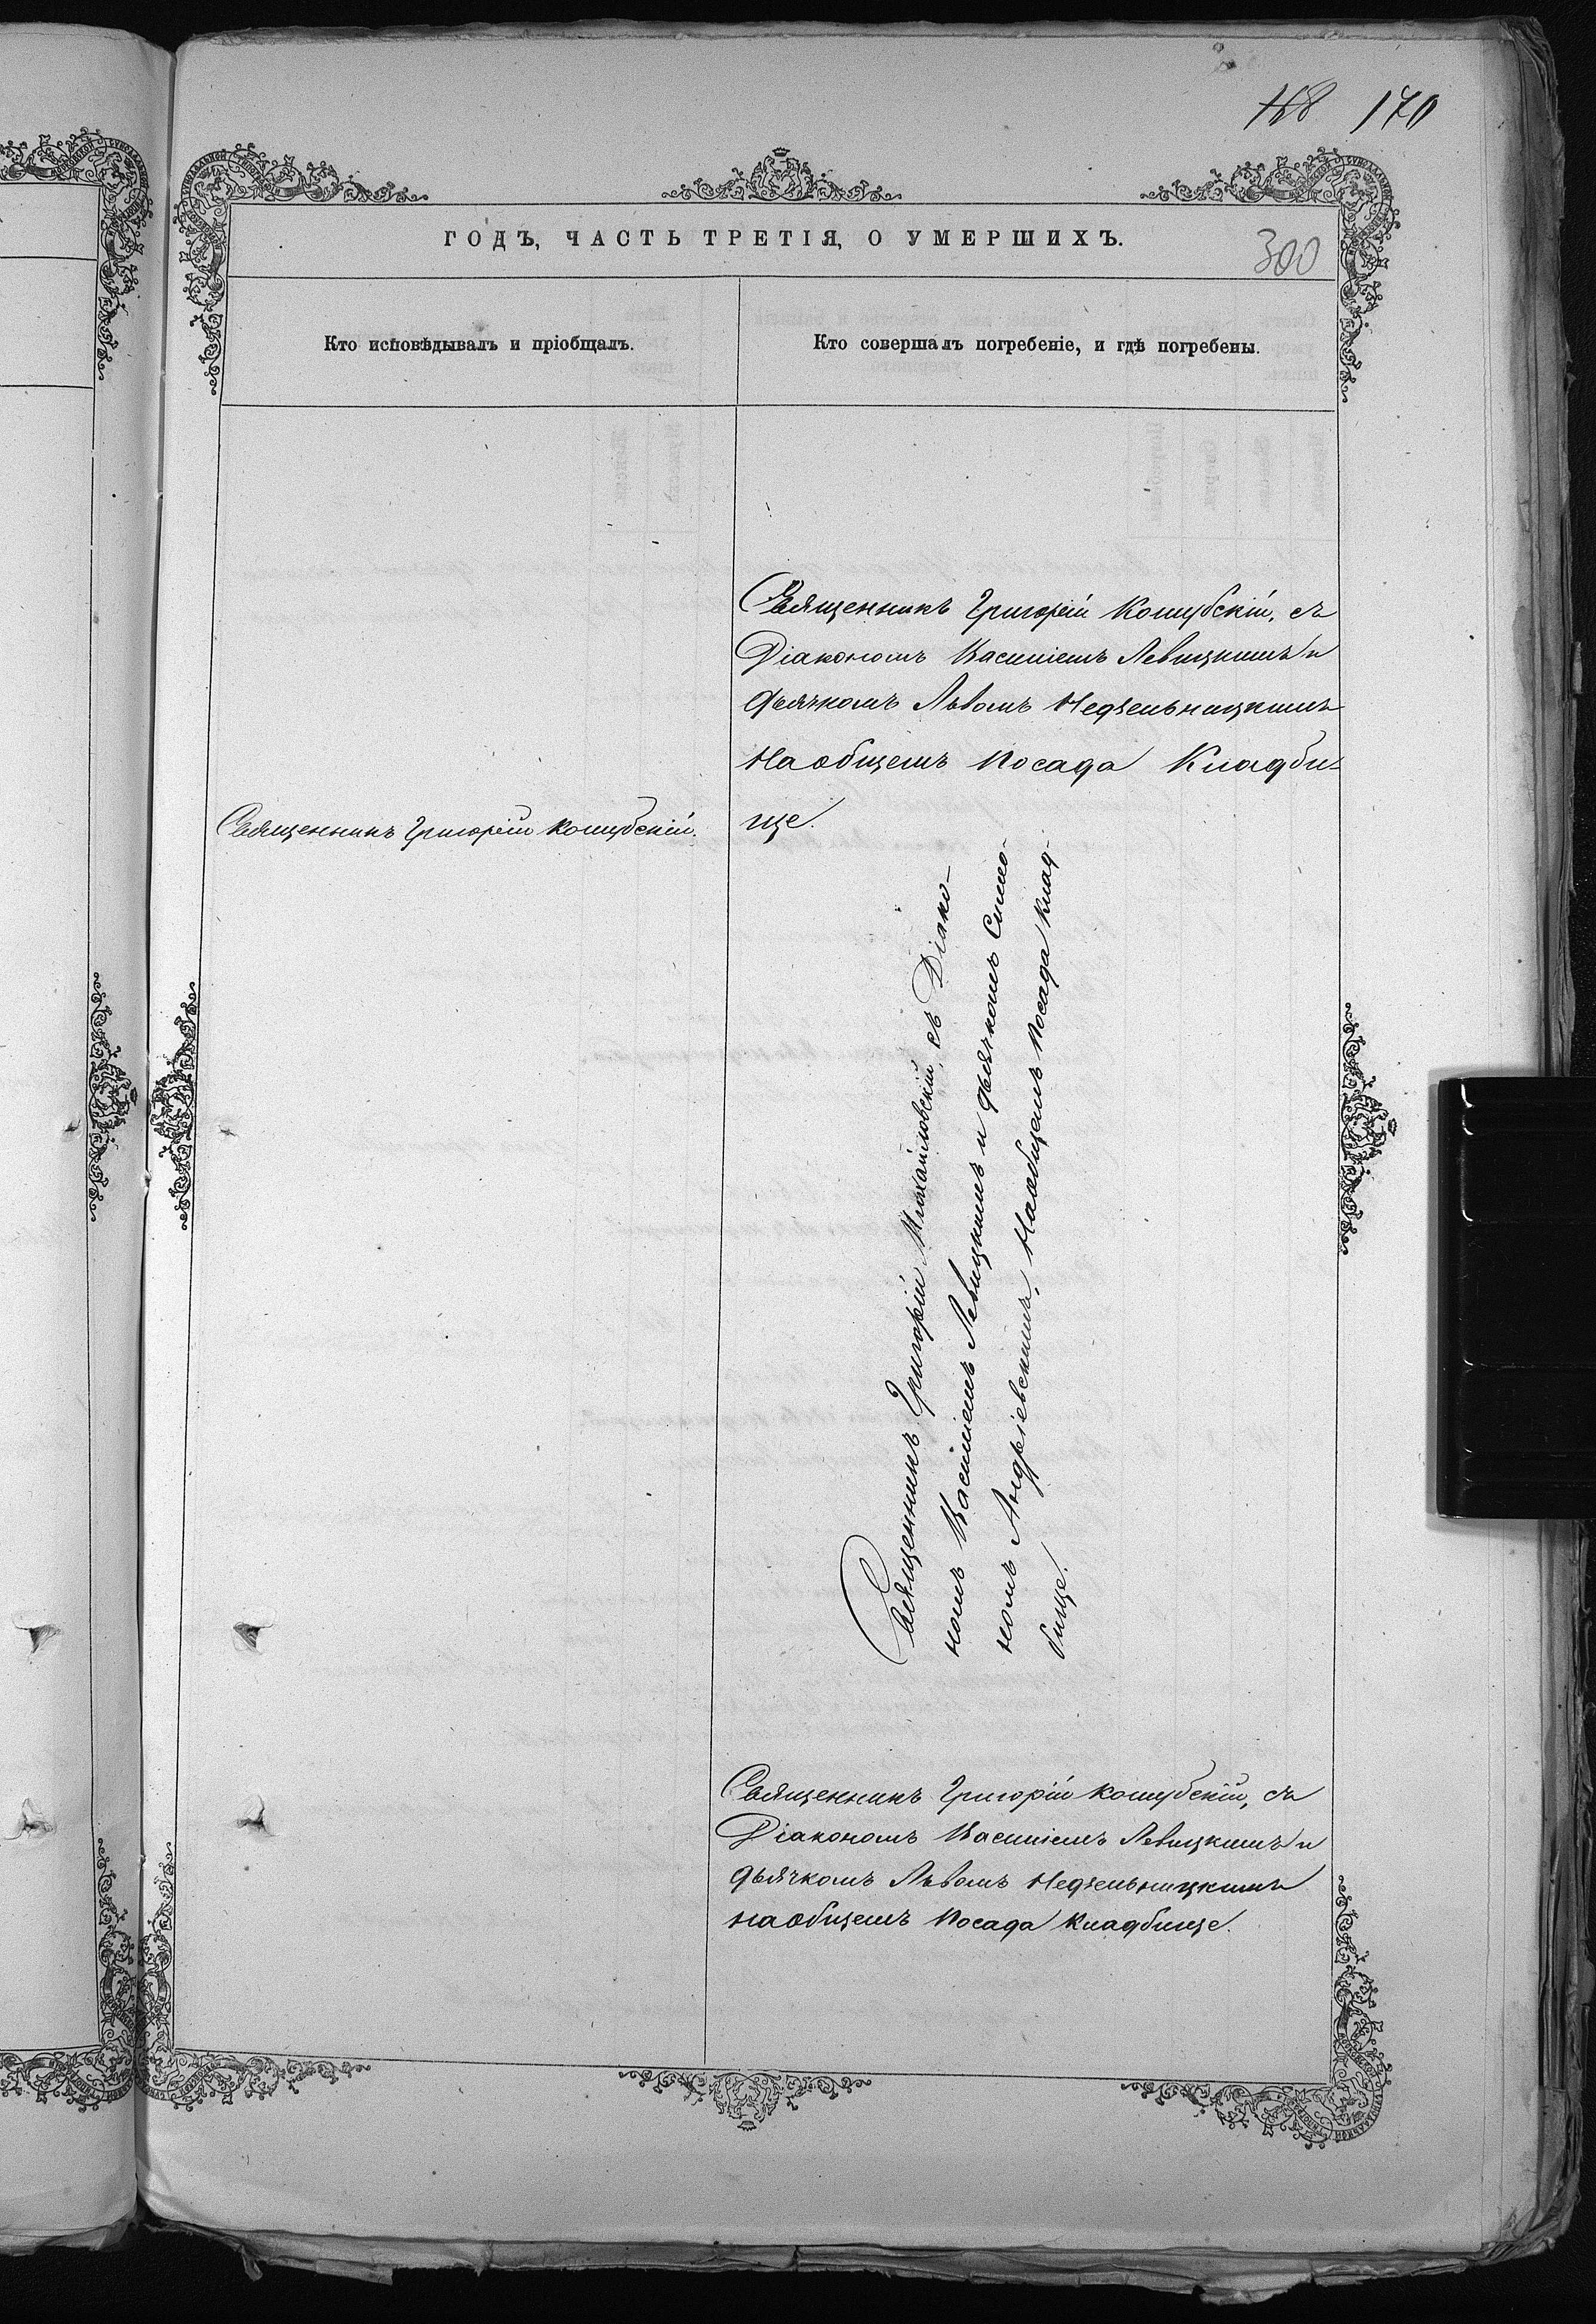 168 170
ГОДЪ, ЧАСТЬ ТРЕТІЯ, О УМЕРШИХЪ.
300
Кто исповѣдывалъ и пріобщалъ.
Кто совершалъ погребеніе, и гдѣ погребены.
Священникъ Григорій Кошубскій, съ
Діакономъ Василіемъ Левицкимъ и
дьячкомъ Львомъ Недзельницкимъ
На общемъ Посада Кладби-
ще.
Священникъ Григорій Кошубскій.
Священникъ Григорій Михайловскій, съ Діако-
номъ Василіемъ Левицкимъ и дьячкомъ Симео-
номъ Андріевскимъ, На общемъ Посада клад-
бище.
Священникъ Григорій Кошубскій, съ
Діакономъ Василіемъ Левицкимъ и
дьячкомъ Львомъ Недзельницкимъ
на общемъ Посада кладбище.